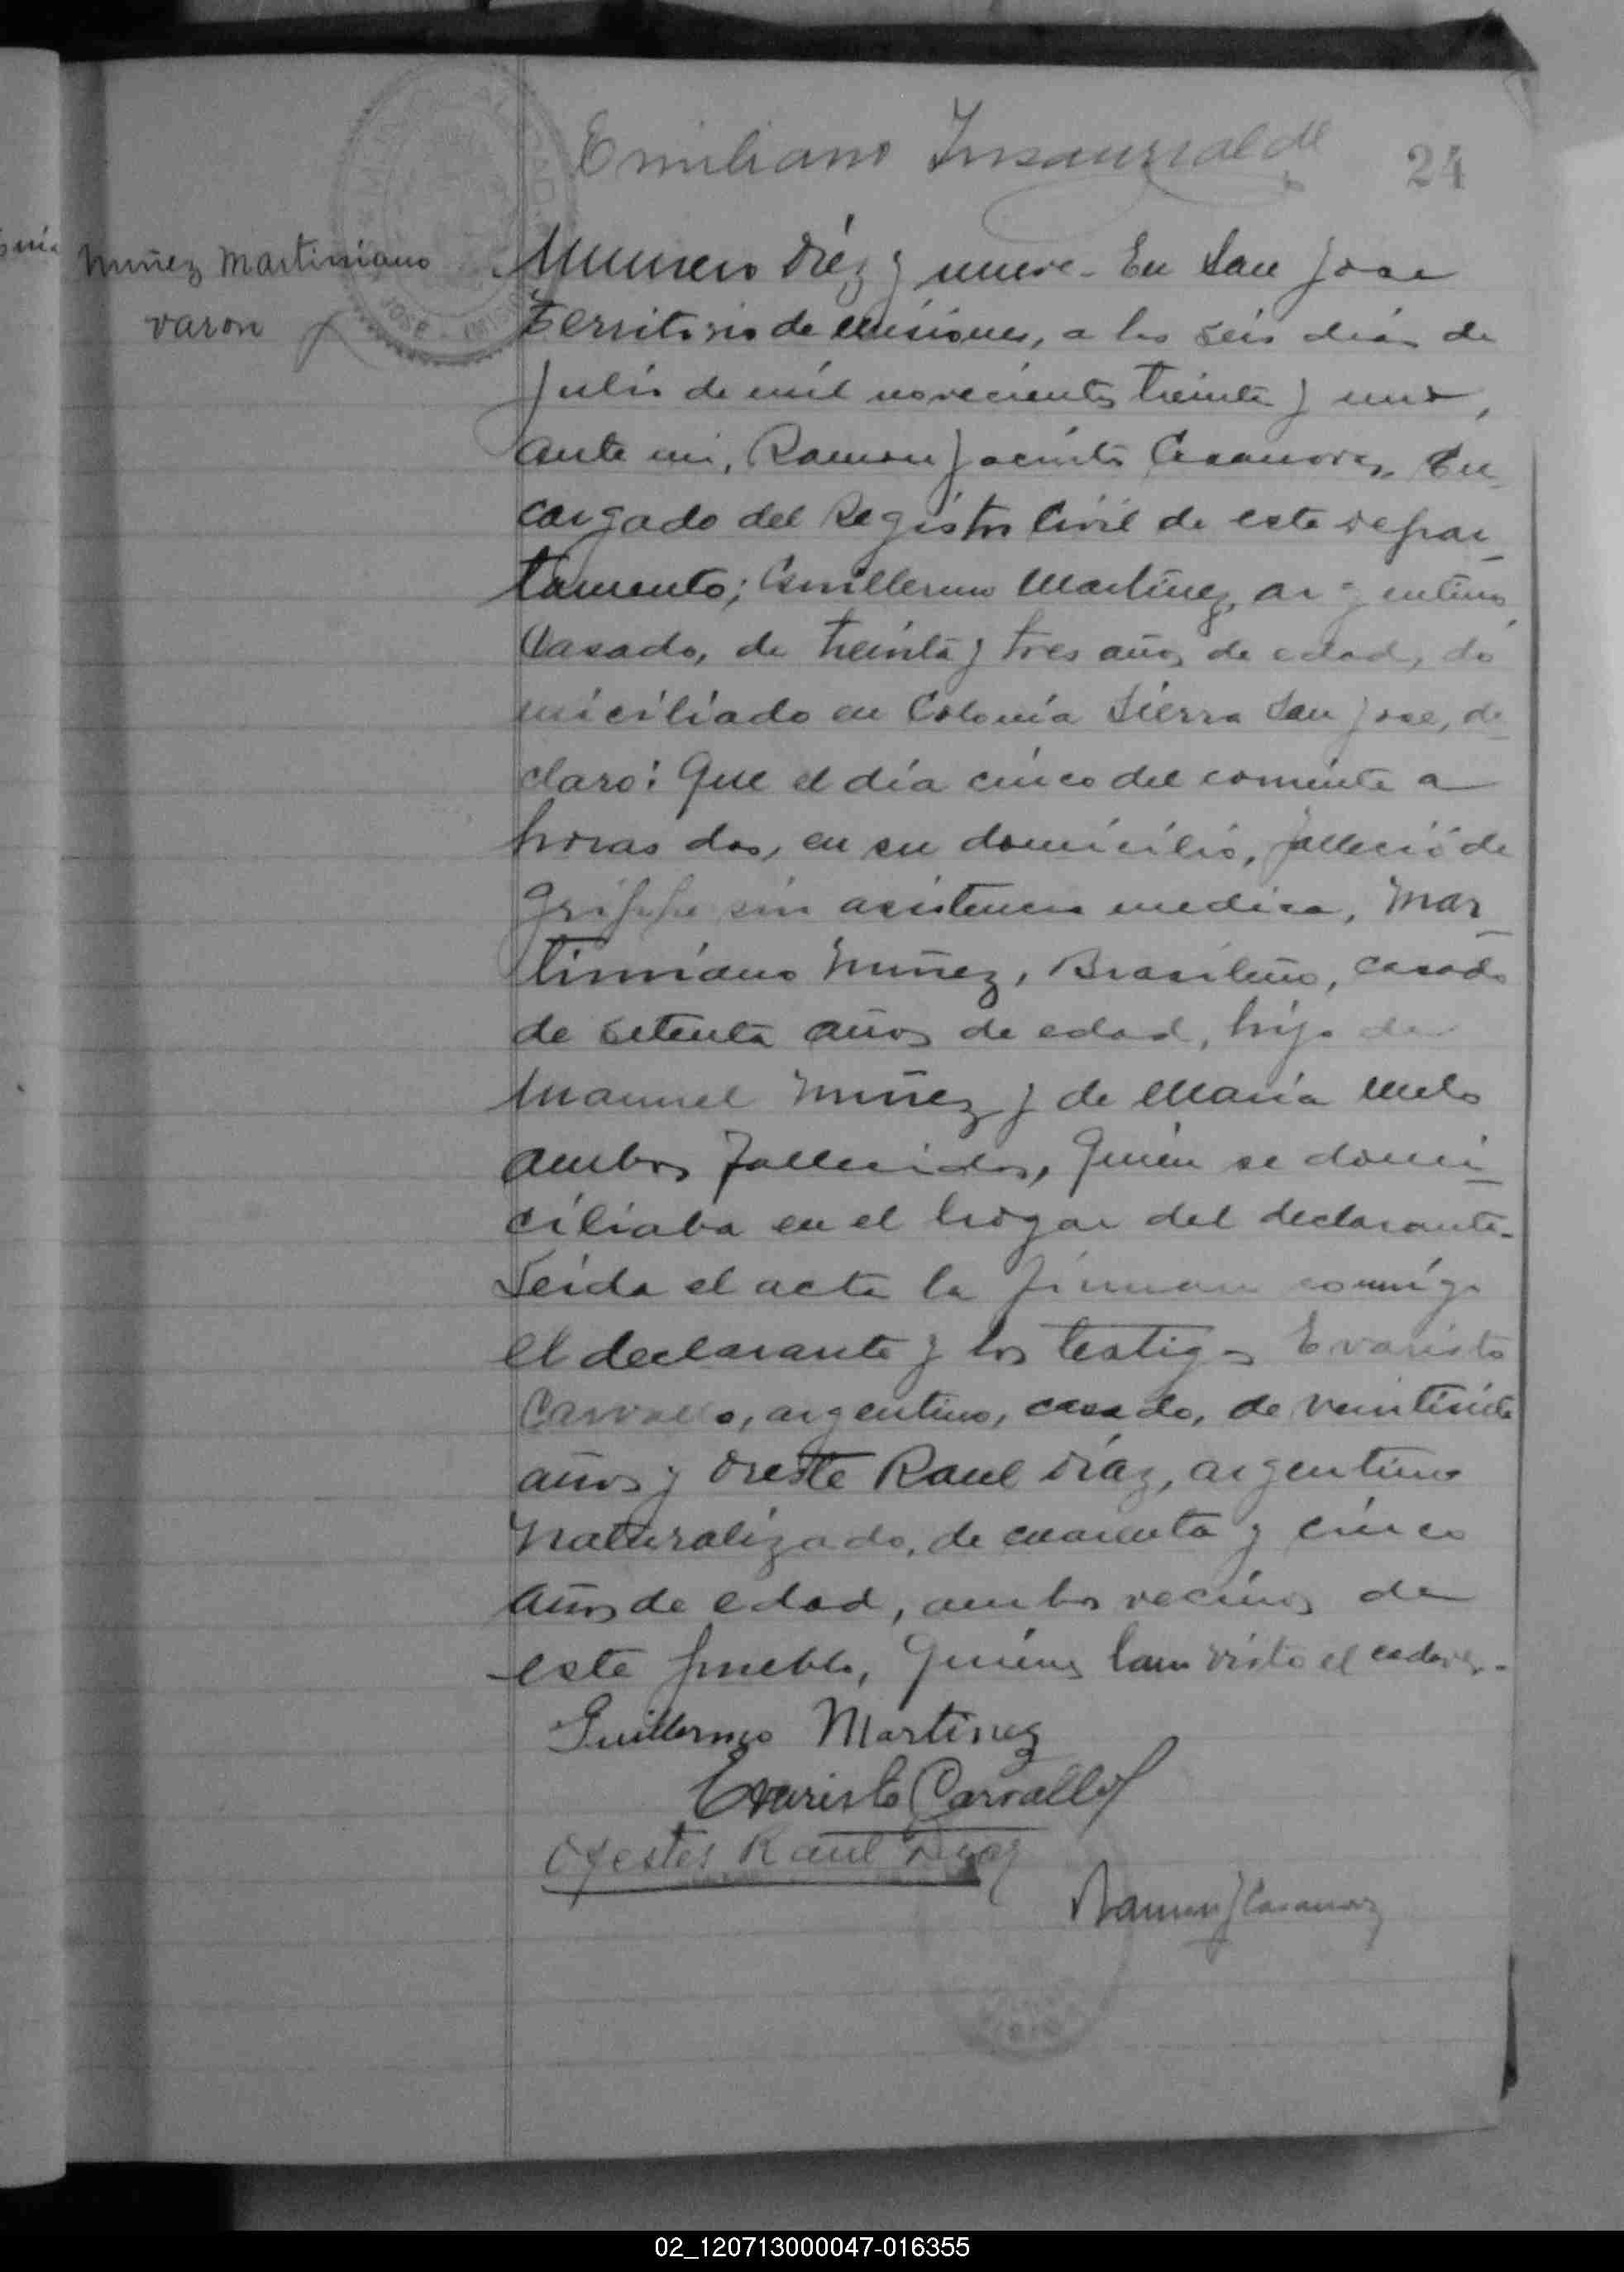 Emiliano Insaurralde
24
Nuñez Martiniano
varon
Numero diéz y nueve - En San Jose
territorio de Misiones, a los seis días de
Julio de mil novecientos treinta y uno,
ante mi, Ramon Jacinto Casanova, En-
cargado del Registro Civil de este depar-
tamento; Guillermo Martinez, argentino,
casado, de treinta y tres años de edad, do
miciliado en Colonia Sierra San Jose, de-
claro: Que el día cinco del corriente a
horas dos, en su domicilio, falleció de
grippe sin asistencia medica, Mar-
tiniano Nuñez, Brasileño, casado
de setenta años de edad, hijo de
Manuel Nuñez y de María Melo
ambos fallecidos, quien se domi-
ciliaba en el hogar del declarante.
Leida el acta la firman conmigo
el declarante y los testigos Evaristo
Carvallo, argentino, casado, de veintisiete
años y Oreste Raul Díaz, argentino
naturalizado, de cuarenta y cinco
años de edad, ambos vecinos de
este pueblo, quienes han visto el cadaver.-
Guillermo Martinez
Evaristo Carvallo
Orestes Raul Diaz
Ramon J Casanova
JOSE - MISIONES
02_120713000047-016355